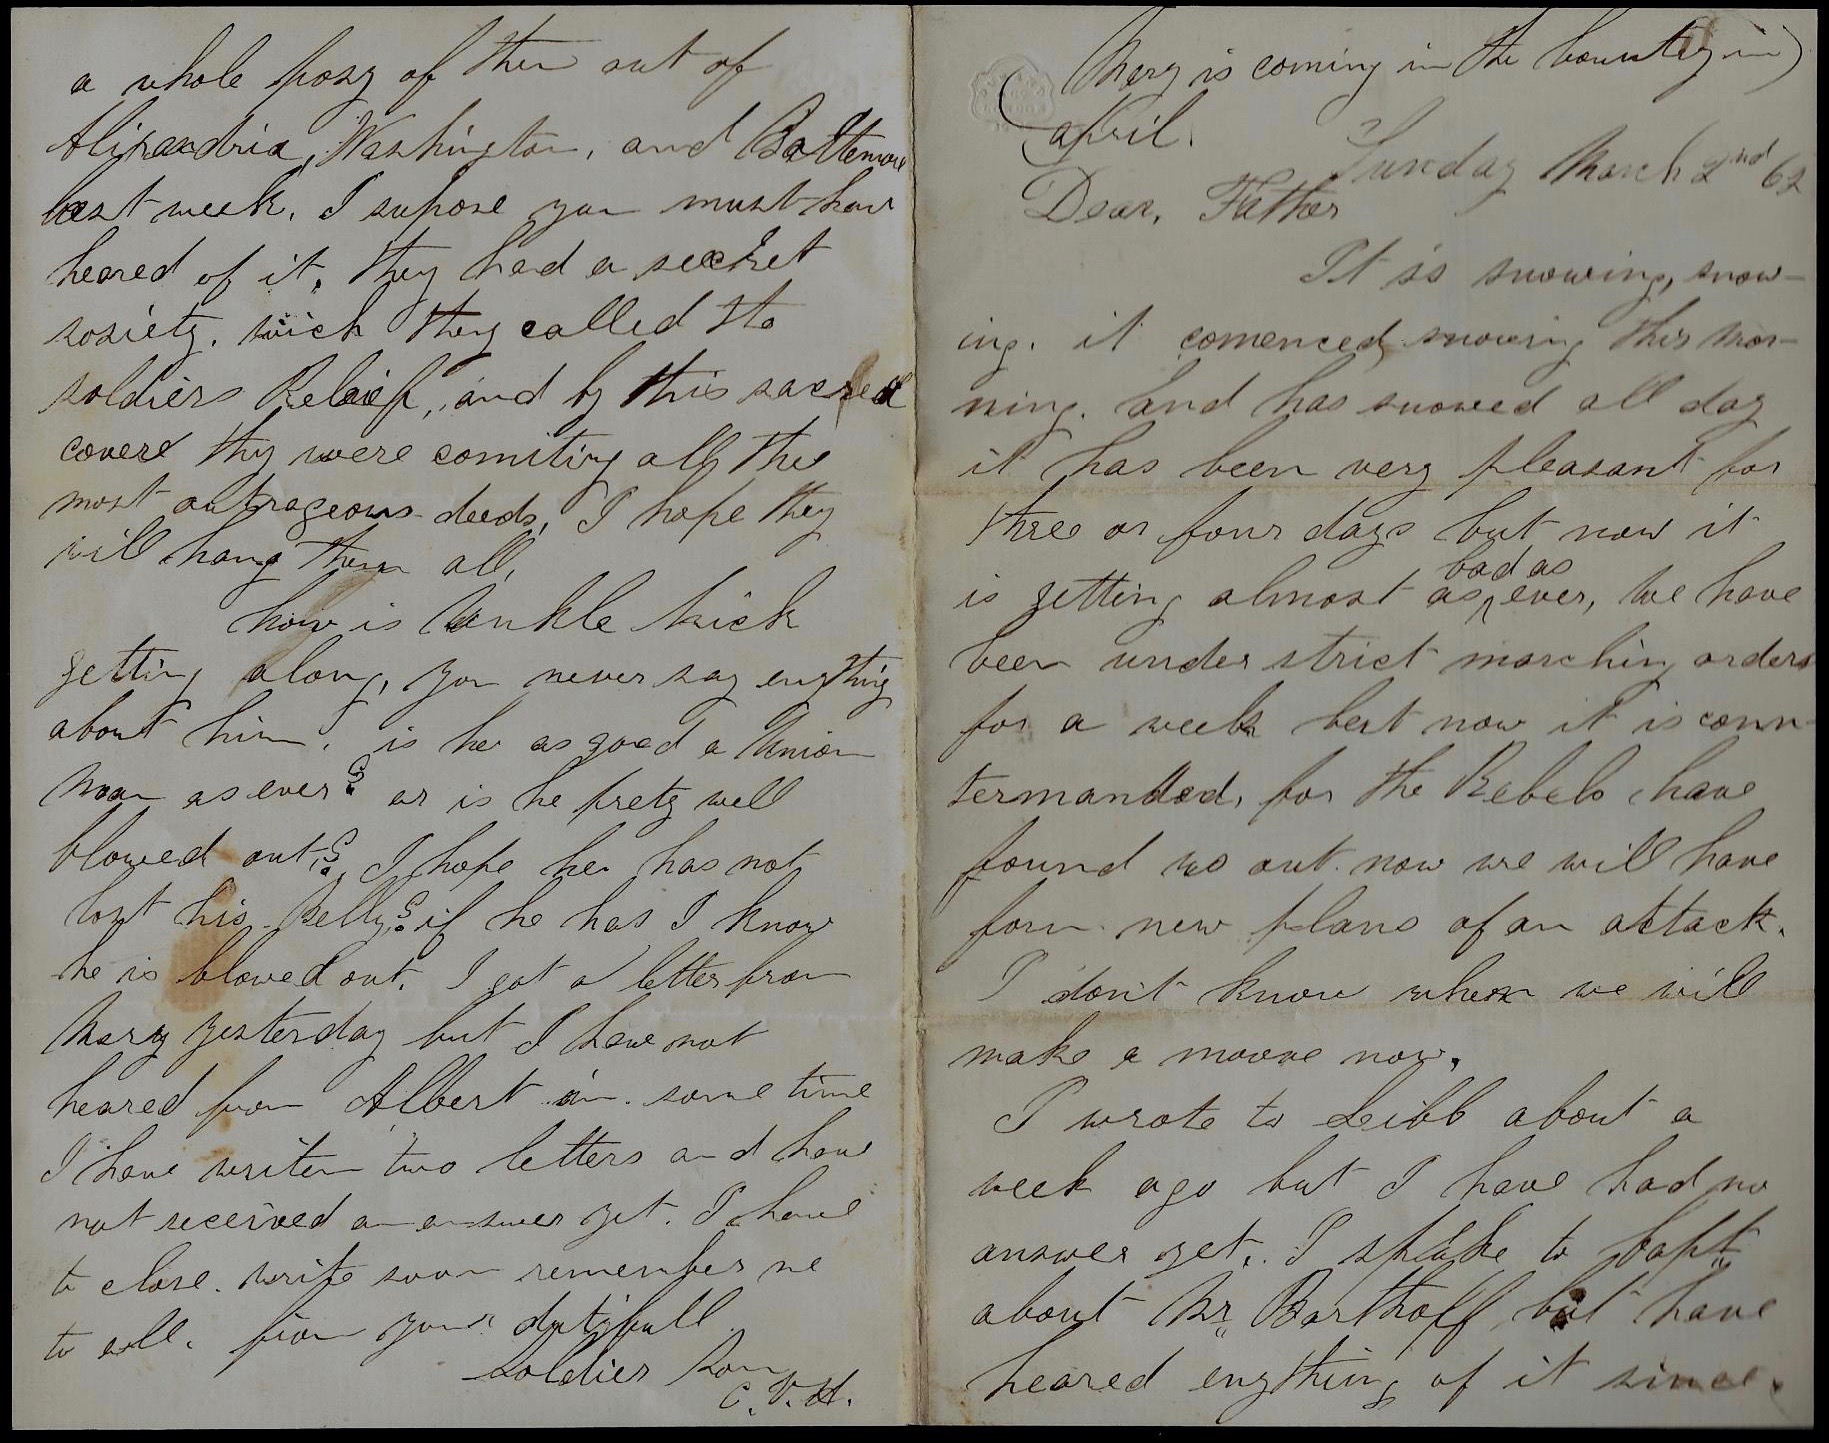 (Mary is coming in the country in)
April.
Sunday March 2nd 62
Dear, Father
It is snowing, snow-
ing. it comenced snowing this mor-
ning. and has snowed all day
it has been very pleasant for
three or four days but now it
bad as
is getting almost as ever, We have
been under strict marching orders
for a week bert now it is coun-
termanded, for the Rebels have
found us out. now we will have
form new plans of an attack.
I don't know when we will
make a moove now.
I wrote to Libb about a
week ago but I have had no
answer yet. I spake to Capt
about Mr. Barthoff but have
heared enything of it since.
a whole posy of them out of
Alixandria, Washington, and Baltemore
last week. I supose you must have
heared of it. they had a secret
soziety. wich they called the
soldiers Releief, and by this sacred
covere thy were comiting all the
most outrageous deeds, I hope they
will hang them all,
how is Unkle Kick
getting along, you never say enything
about him. is he as good a Union
man as ever? or is he prety well
blowed out? I hope he has not
lost his Belly? if he has I know
he is blowed out. I got a letter from
Mary yesterday but I have not
heared from Albert in some time
I have writen two letters and have
not received an answer yet. I have
to close. Write soon remember me
to all. from your dutyfull
soldier son
C. V. H.